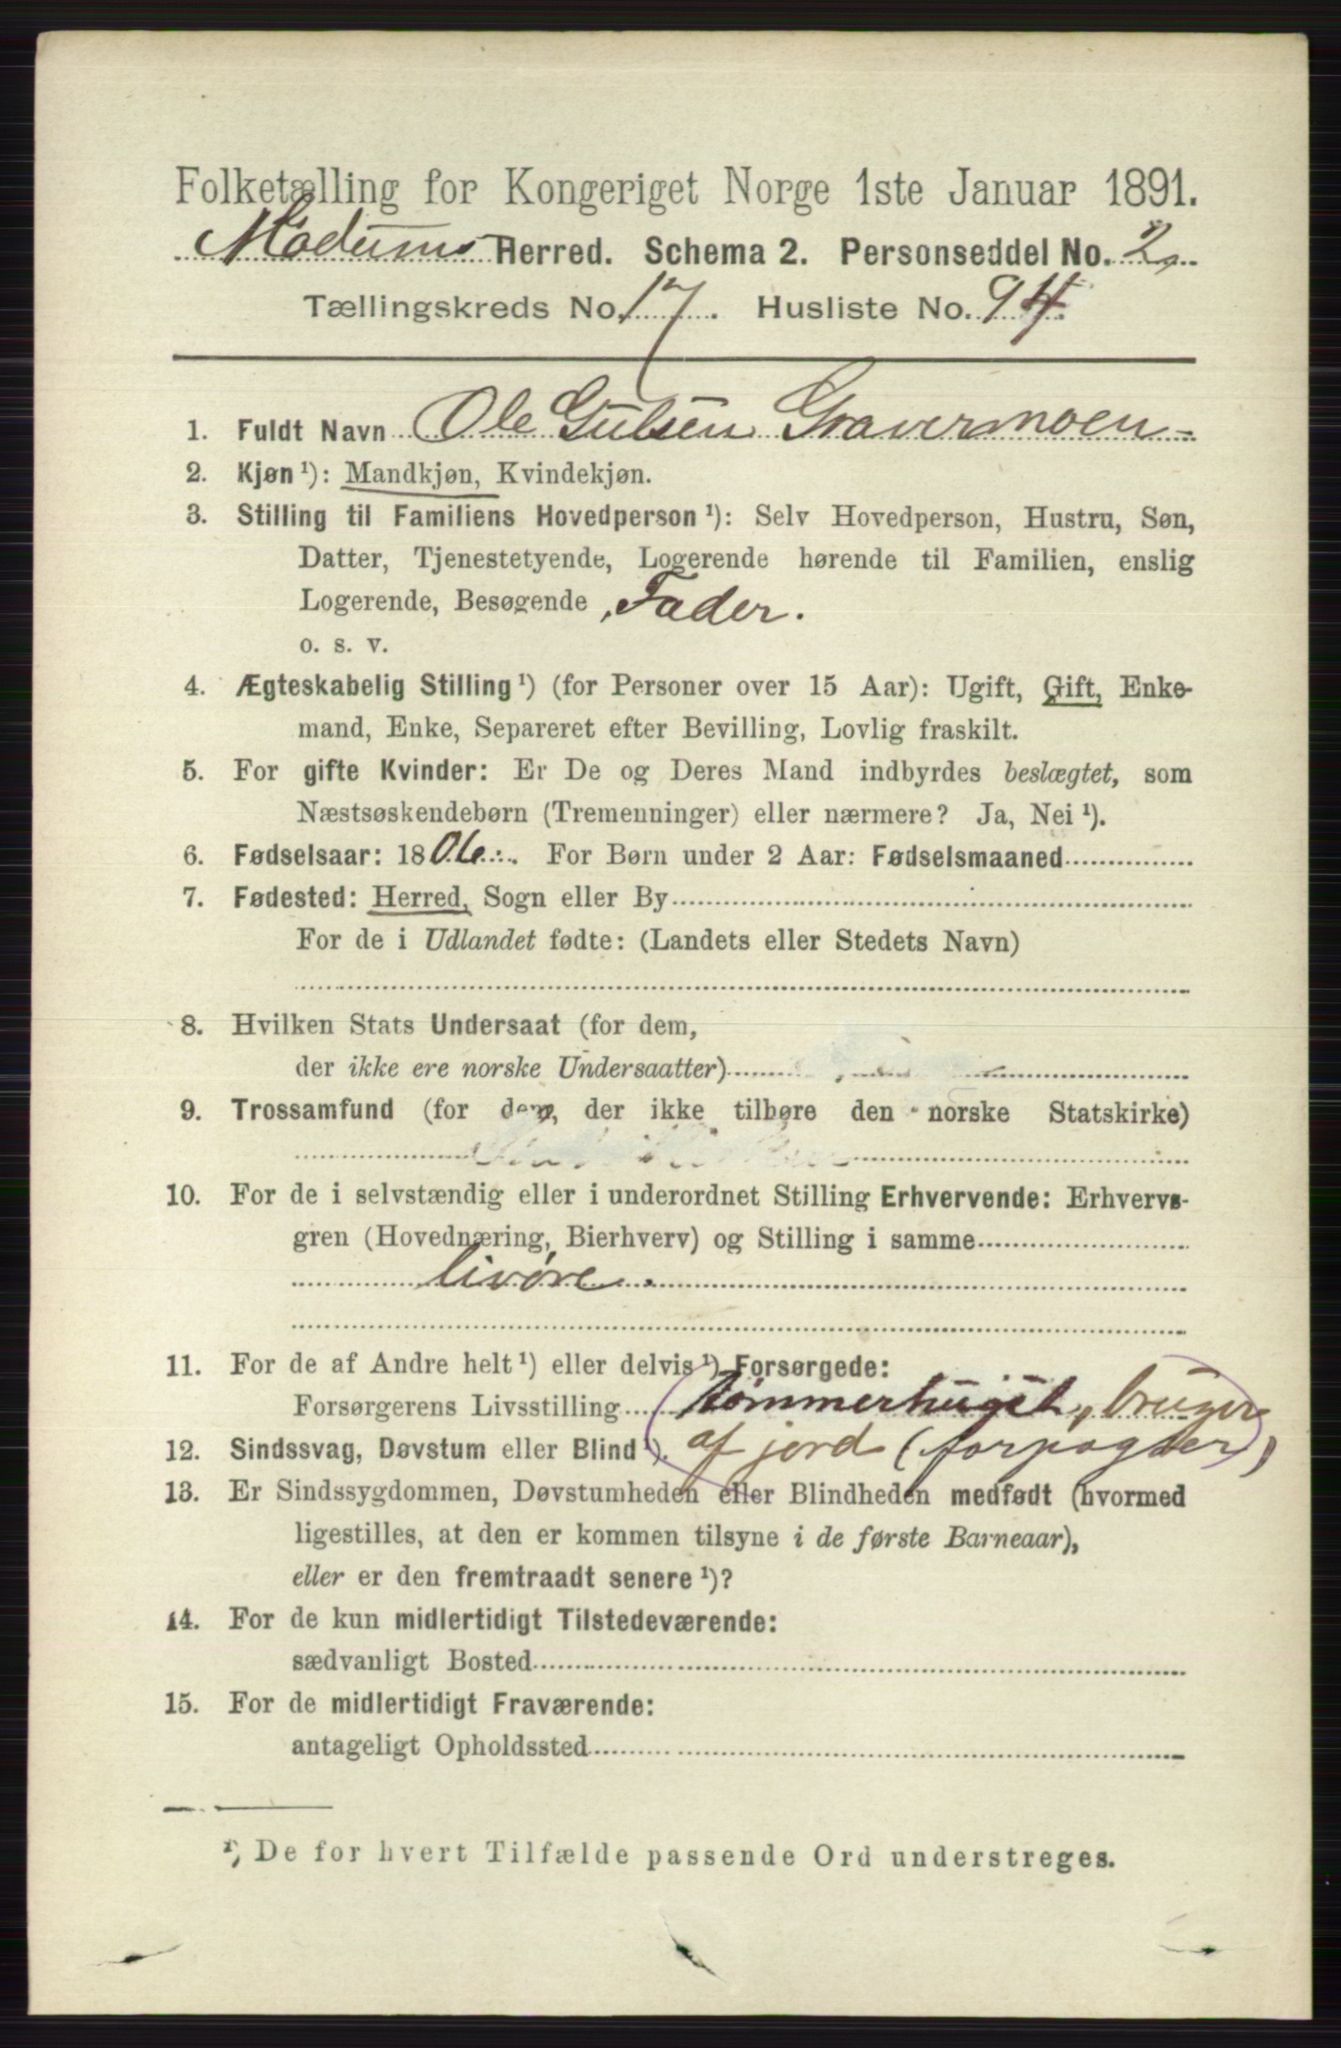 Folketælling for Kongeriget Norge 1ste Januar 1891.
Modums Herred. Schema 2. Personseddel No. 2,
Tællingskreds No. 17. Husliste No. 94.
1. Fuldt Navn Ole Gulsen Gravermoen
2. Kjøn ¹): Mandkjøn, Kvindekjøn.
3. Stilling til Familiens Hovedperson ¹): Selv Hovedperson, Hustru, Søn,
Datter, Tjenestetyende, Logerende hørende til Familien, enslig
Logerende, Besøgende, Fader.
o. s. v.
4. Ægteskabelig Stilling ¹) (for Personer over 15 Aar): Ugift, Gift, Enke-
mand, Enke, Separeret efter Bevilling, Lovlig fraskilt.
5. For gifte Kvinder: Er De og Deres Mand indbyrdes beslægtet, som
Næstsøskendebørn (Tremenninger) eller nærmere? Ja, Nei ¹).
6. Fødselsaar: 1806. For Børn under 2 Aar: Fødselsmaaned
7. Fødested: Herred, Sogn eller By
For de i Udlandet fødte: (Landets eller Stedets Navn)
8. Hvilken Stats Undersaat (for dem,
der ikke ere norske Undersaatter)
9. Trossamfund (for dem, der ikke tilhøre den norske Statskirke)
10. For de i selvstændig eller i underordnet Stilling Erhvervende: Erhvervs-
gren (Hovednæring, Bierhverv) og Stilling i samme
livøre.
11. For de af Andre helt ¹) eller delvis ¹) Forsørgede:
Forsørgerens Livsstilling tømmerhuget, bruger
12. Sindssvag, Døvstum eller Blind ¹). af jord (forpagter)
13. Er Sindssygdommen, Døvstumheden eller Blindheden medfødt (hvormed
ligestilles, at den er kommen tilsyne i de første Barneaar),
eller er den fremtraadt senere ¹)?
14. For de kun midlertidigt Tilstedeværende:
sædvanligt Bosted
15. For de midlertidigt Fraværende:
antageligt Opholdssted
¹) De for hvert Tilfælde passende Ord understreges.